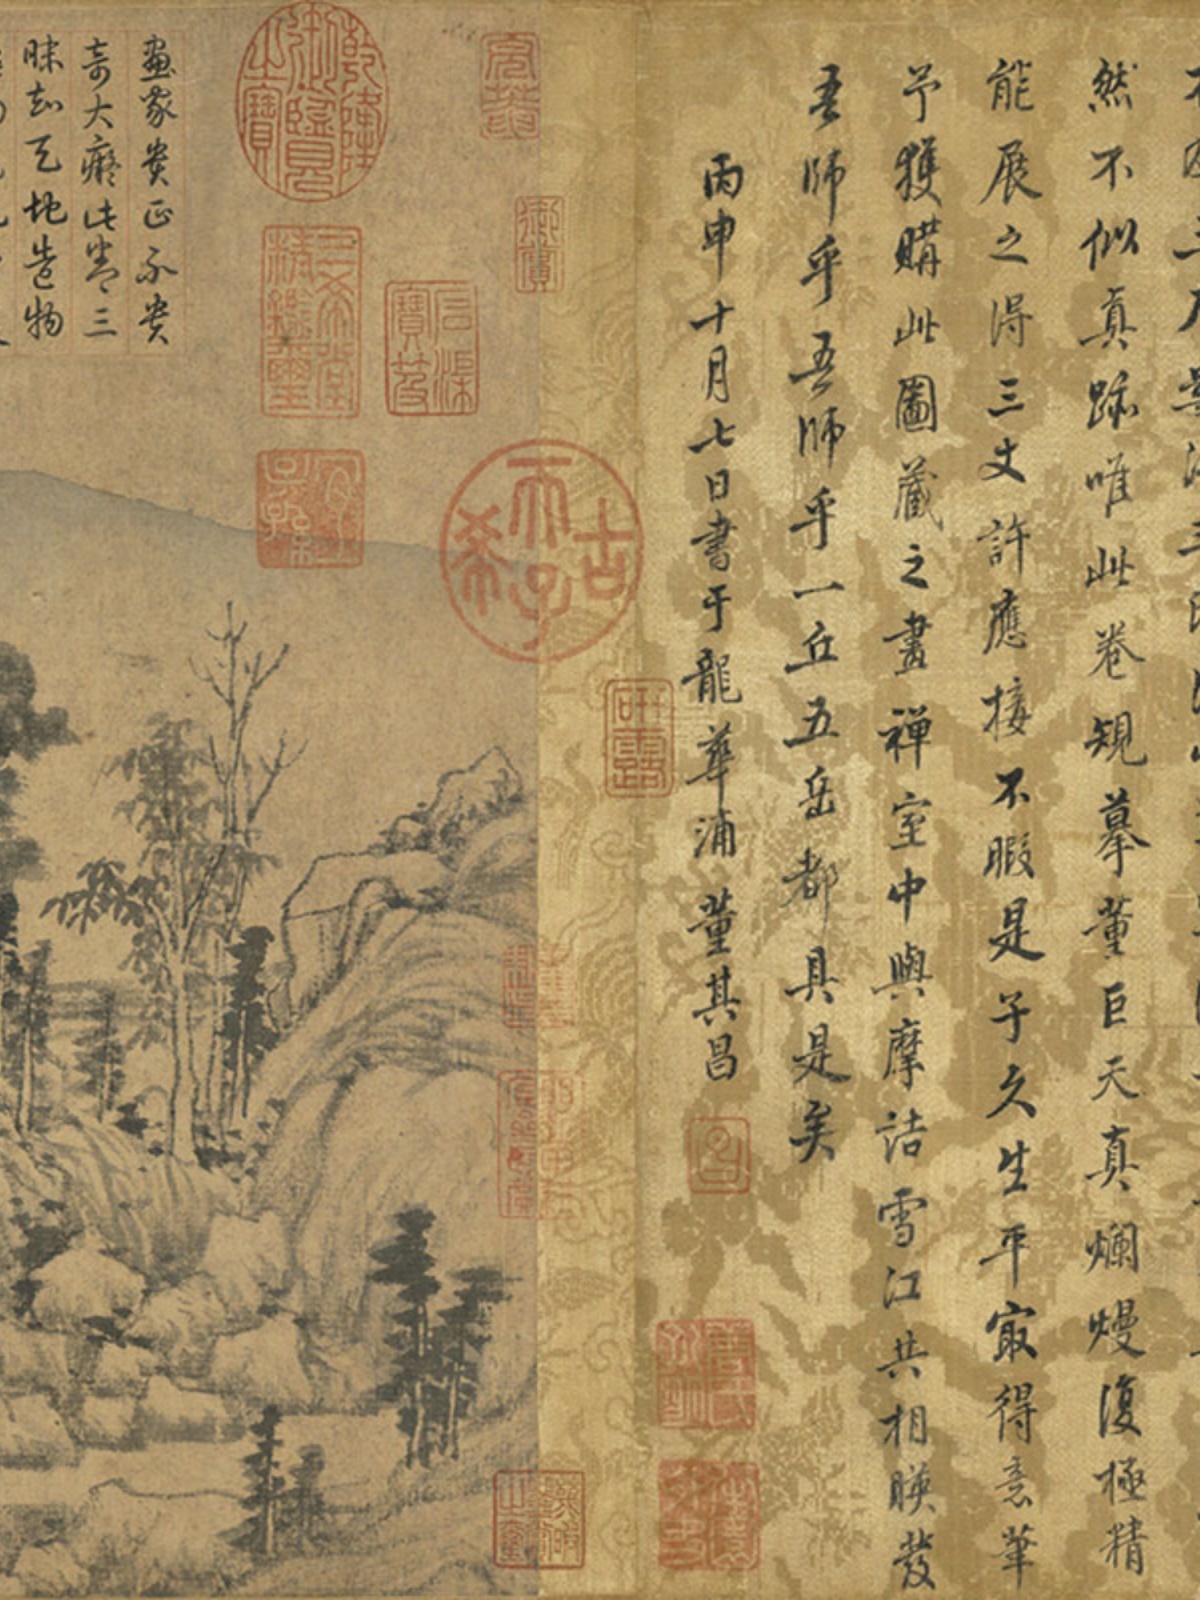 然不似真跡唯此卷規摹董巨天真爛熳復極精
能展之得三丈許應接不暇是子久生平㝡得意筆
予獲購此圖藏之畫禪室中與摩詰雪江共相暎發
吾師乎吾師乎一丘五岳都具是矣
丙申十月七日書于龍華浦董其昌
研露
古希天子
石渠寶笈
乾隆御覽之寶
三希堂精鑑璽
宜子孫
畫家貴正不貴
奇大癡此卷三
昧天地造物